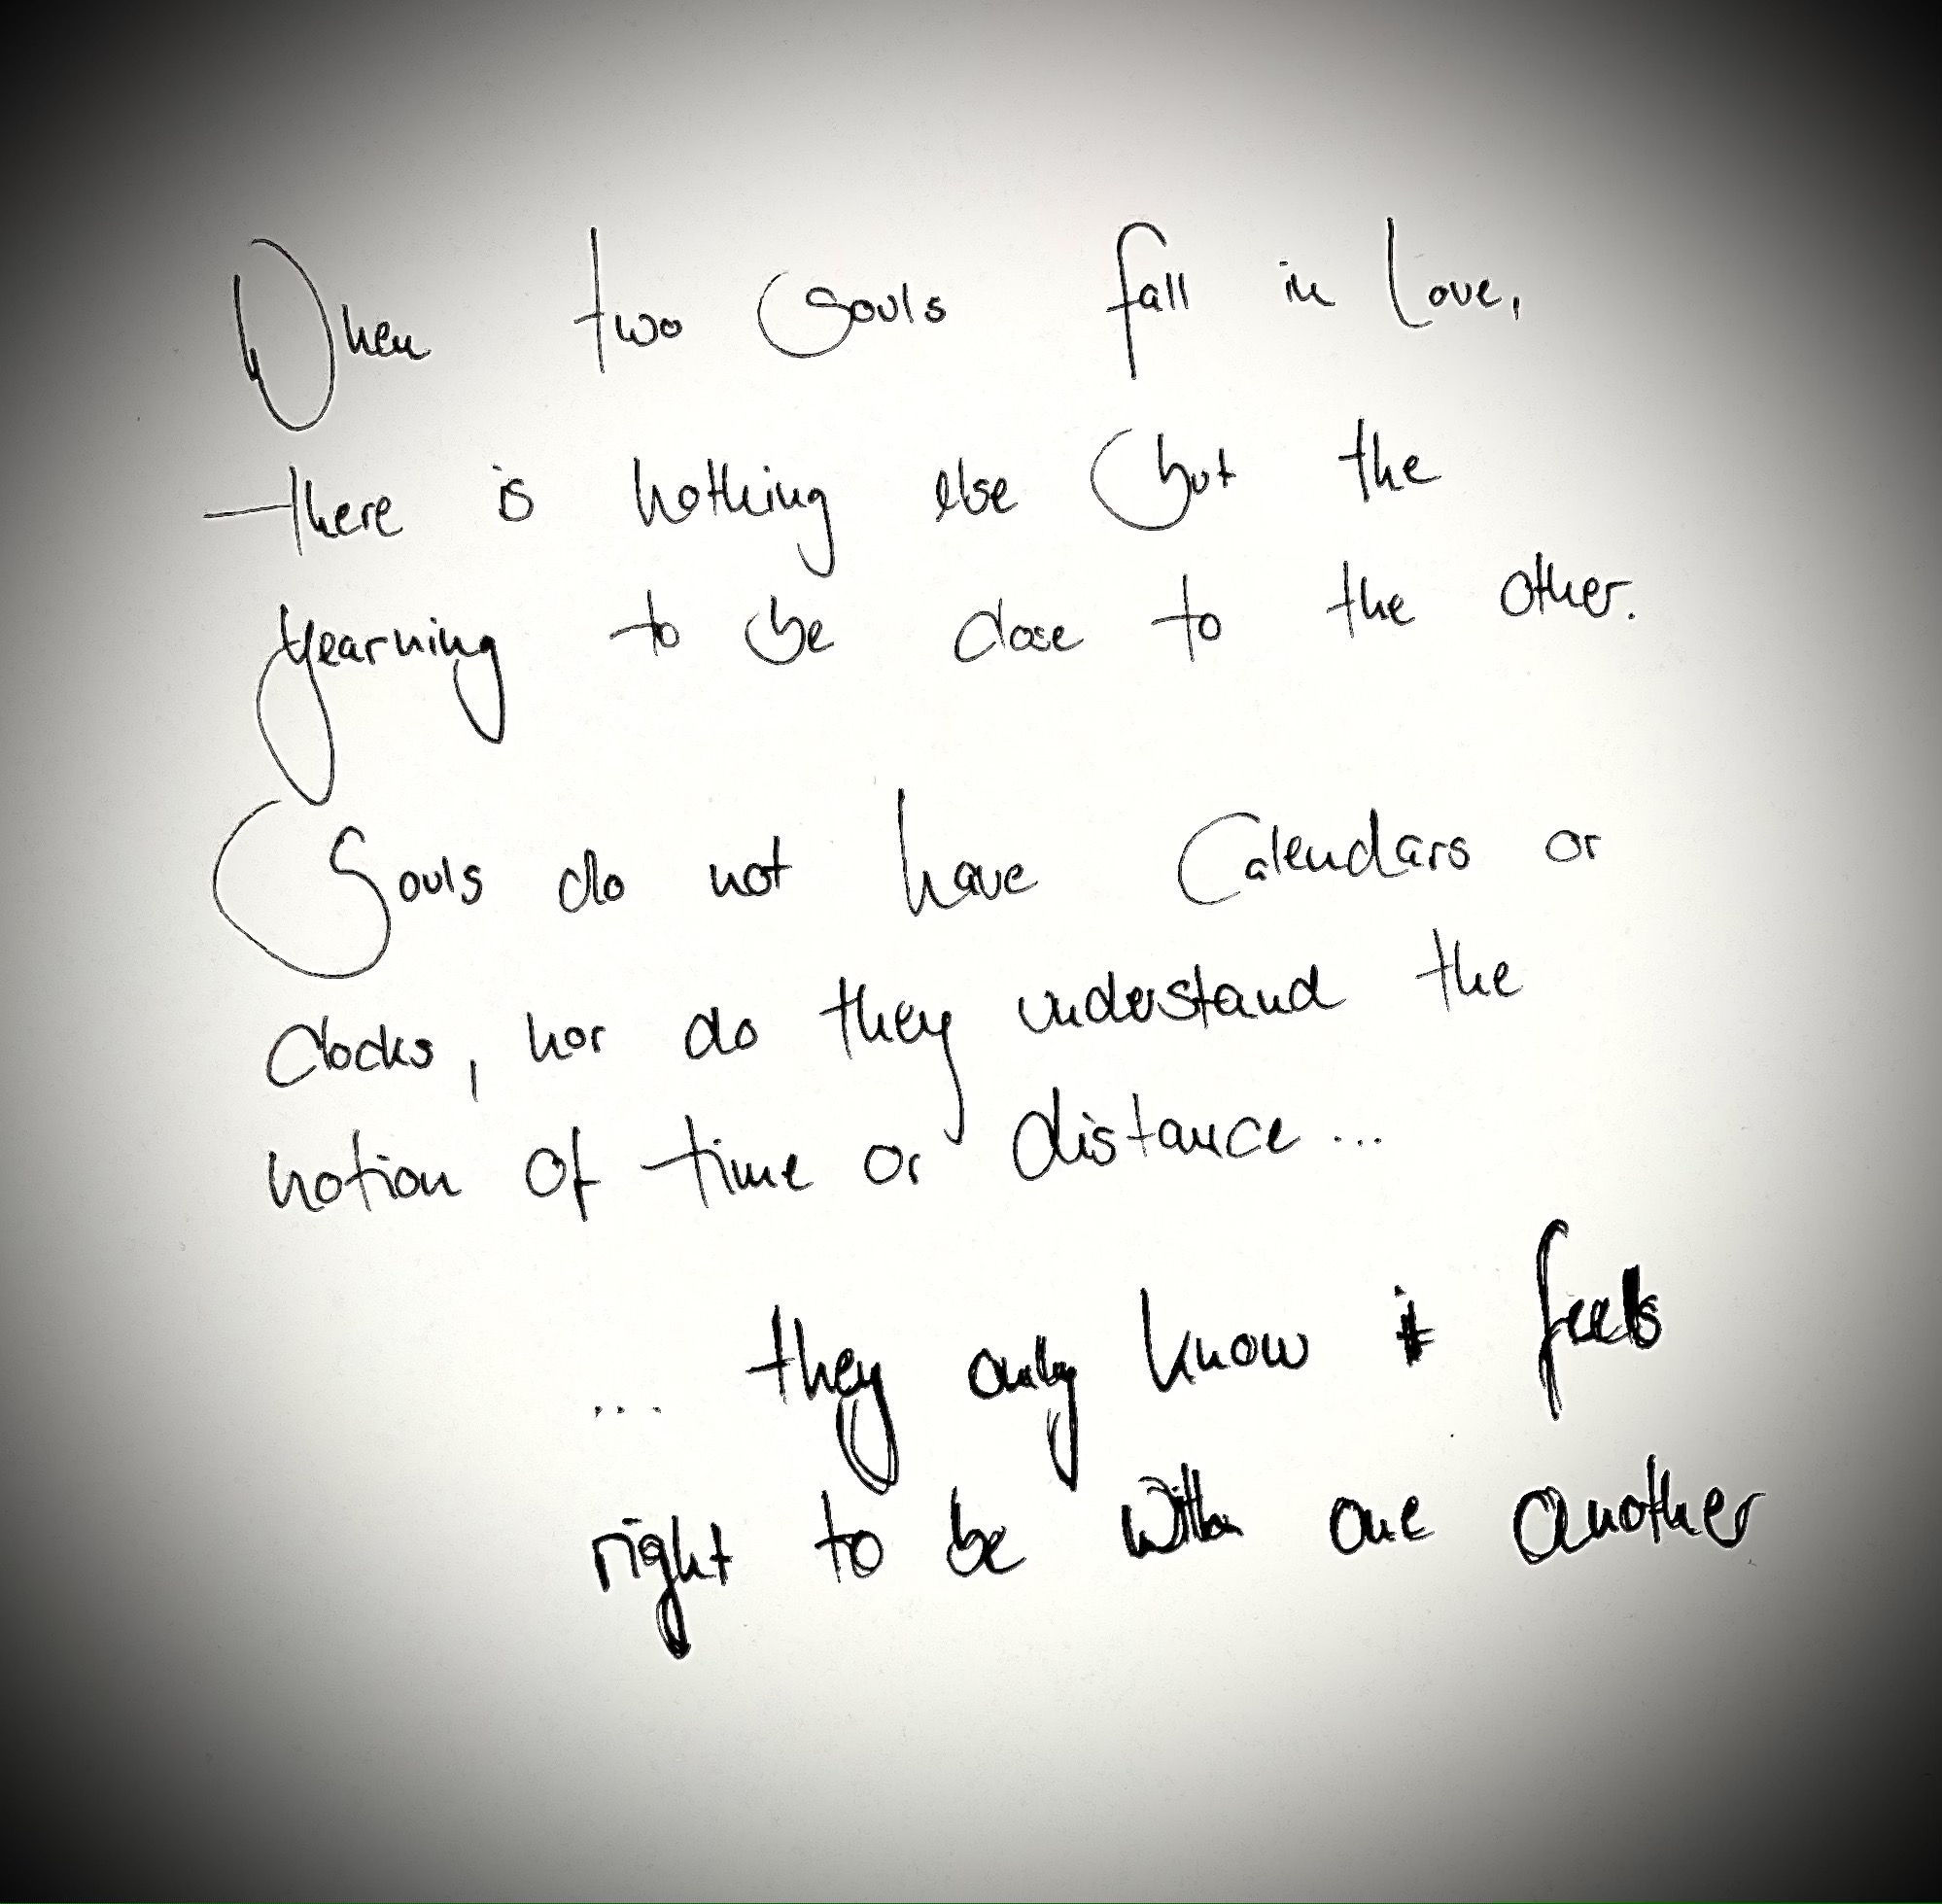 When two Souls fall in Love,
there is nothing else but the
yearning to be close to the other.
Souls do not have Calendars or
Clocks, nor do they understand the
notion of time or distance...
... they only know it feels
right to be with one another